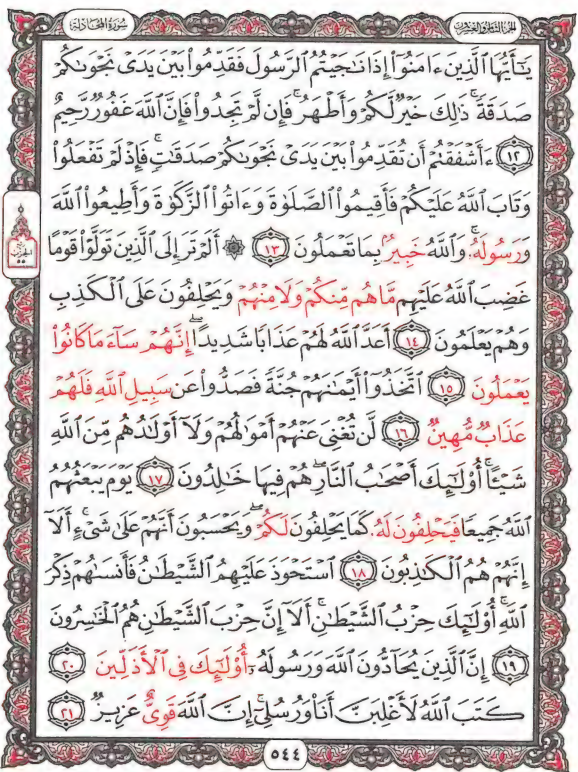 الجزء الثامن والعشرون
سُورَةُ المُجَادلة
يَٰٓأَيُّهَا ٱلَّذِينَ ءَامَنُوٓاْ إِذَا نَٰجَيۡتُمُ ٱلرَّسُولَ فَقَدِّمُواْ بَيۡنَ يَدَيۡ نَجۡوَىٰكُمۡ
صَدَقَةٗۚ ذَٰلِكَ خَيۡرٞ لَّكُمۡ وَأَطۡهَرُۚ فَإِن لَّمۡ تَجِدُواْ فَإِنَّ ٱللَّهَ غَفُورٞ رَّحِيمٌ
١٢ ءَأَشۡفَقۡتُمۡ أَن تُقَدِّمُواْ بَيۡنَ يَدَيۡ نَجۡوَىٰكُمۡ صَدَقَٰتٖۚ فَإِذۡ لَمۡ تَفۡعَلُواْ
وَتَابَ ٱللَّهُ عَلَيۡكُمۡ فَأَقِيمُواْ ٱلصَّلَوٰةَ وَءَاتُواْ ٱلزَّكَوٰةَ وَأَطِيعُواْ ٱللَّهَ
وَرَسُولَهُۥۚ وَٱللَّهُ خَبِيرُۢ بِمَا تَعۡمَلُونَ ١٣ ۞ أَلَمۡ تَرَ إِلَى ٱلَّذِينَ تَوَلَّوۡاْ قَوۡمًا
غَضِبَ ٱللَّهُ عَلَيۡهِم مَّا هُم مِّنكُمۡ وَلَا مِنۡهُمۡ وَيَحۡلِفُونَ عَلَى ٱلۡكَذِبِ
وَهُمۡ يَعۡلَمُونَ ١٤ أَعَدَّ ٱللَّهُ لَهُمۡ عَذَابٗا شَدِيدًاۖ إِنَّهُمۡ سَآءَ مَا كَانُواْ
يَعۡمَلُونَ ١٥ ٱتَّخَذُوٓاْ أَيۡمَٰنَهُمۡ جُنَّةٗ فَصَدُّواْ عَن سَبِيلِ ٱللَّهِ فَلَهُمۡ
عَذَابٞ مُّهِينٞ ١٦ لَّن تُغۡنِيَ عَنۡهُمۡ أَمۡوَٰلُهُمۡ وَلَآ أَوۡلَٰدُهُم مِّنَ ٱللَّهِ
شَيۡـًٔاۚ أُوْلَٰٓئِكَ أَصۡحَٰبُ ٱلنَّارِۖ هُمۡ فِيهَا خَٰلِدُونَ ١٧ يَوۡمَ يَبۡعَثُهُمُ
ٱللَّهُ جَمِيعٗا فَيَحۡلِفُونَ لَهُۥ كَمَا يَحۡلِفُونَ لَكُمۡۖ وَيَحۡسَبُونَ أَنَّهُمۡ عَلَىٰ شَيۡءٍۚ أَلَآ
إِنَّهُمۡ هُمُ ٱلۡكَٰذِبُونَ ١٨ ٱسۡتَحۡوَذَ عَلَيۡهِمُ ٱلشَّيۡطَٰنُ فَأَنسَىٰهُمۡ ذِكۡرَ
ٱللَّهِۚ أُوْلَٰٓئِكَ حِزۡبُ ٱلشَّيۡطَٰنِۚ أَلَآ إِنَّ حِزۡبَ ٱلشَّيۡطَٰنِ هُمُ ٱلۡخَٰسِرُونَ
١٩ إِنَّ ٱلَّذِينَ يُحَآدُّونَ ٱللَّهَ وَرَسُولَهُۥٓ أُوْلَٰٓئِكَ فِي ٱلۡأَذَلِّينَ ٢٠
كَتَبَ ٱللَّهُ لَأَغۡلِبَنَّ أَنَا۠ وَرُسُلِيٓۚ إِنَّ ٱللَّهَ قَوِيٌّ عَزِيزٞ ٢١
٥٤٤